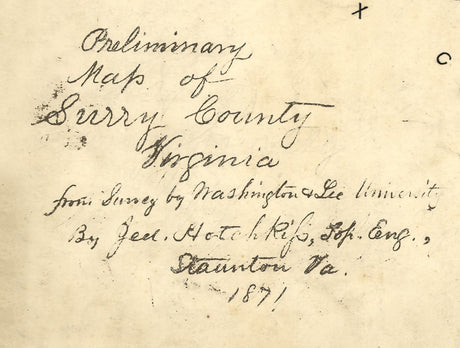 Preliminary
Map of
Surry County
Virginia
from Survey by Washington & Lee University
By Jed. Hotchkiss, Top. Eng.,
Staunton Va.
1871